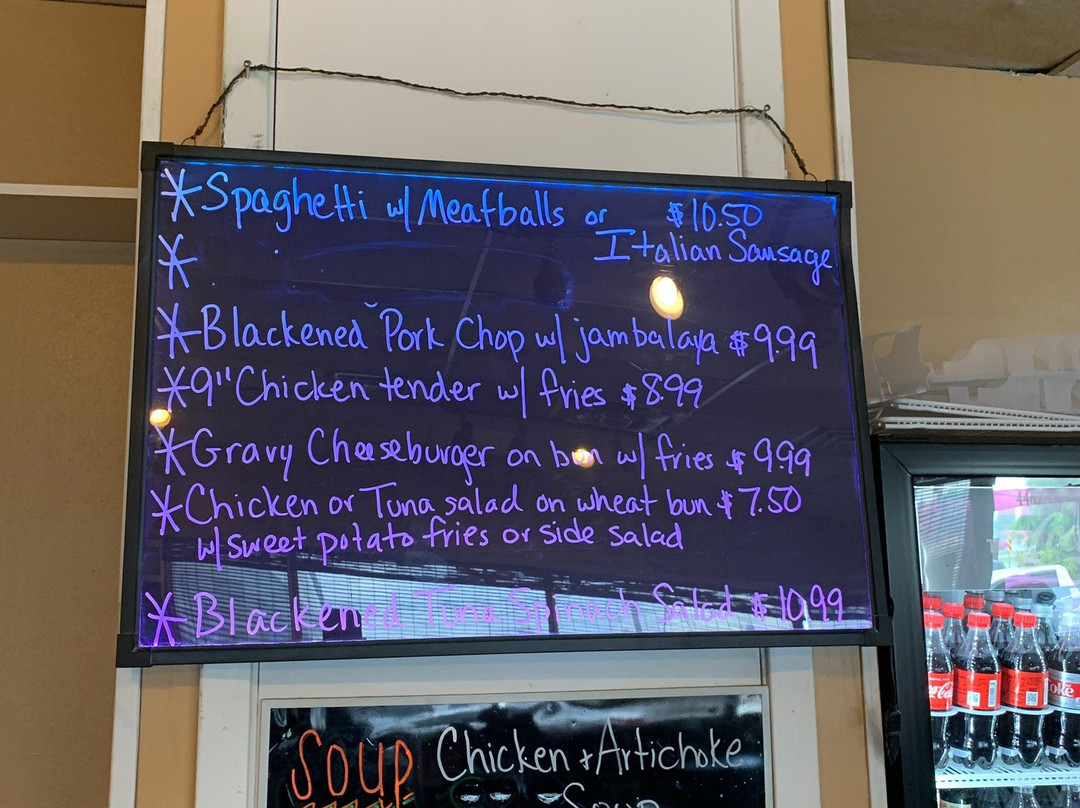 *Spaghetti w/ Meatballs or $10.50
Italian Sausage
*
*Blackened Pork Chop w/ jambalaya $9.99
*9" Chicken tender w/ fries $8.99
*Gravy Cheeseburger on bun w/ fries $9.99
*Chicken or Tuna salad on wheat bun $7.50
w/ sweet potato fries or side salad
*Blackened Tuna Spinach Salad $10.99
SOUP Chicken + Artichoke
Soup